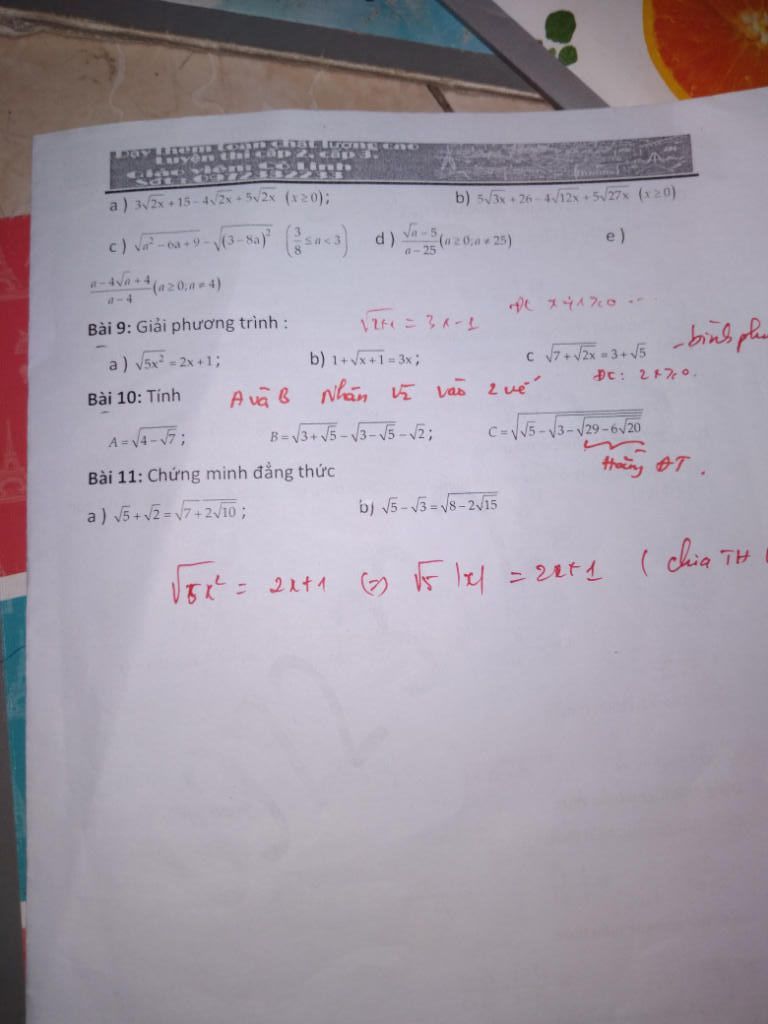 Dạy thêm toán chất lượng cao
Luyện thi cấp 2, cấp 3.
Giáo viên:
a ) 3√2x + 15 − 4√2x + 5√2x (x ≥ 0); b) 5√3x + 26 − 4√12x + 5√27x (x ≥ 0)
c ) √(a² − 6a + 9) − √(3 − 8a)² (3/8 ≤ a < 3) d ) (√a − 5)/(a − 25) (a ≥ 0; a ≠ 25) e )
(a − 4√a + 4)/(a − 4) (a ≥ 0; a ≠ 4)
Bài 9: Giải phương trình : √x+1 = 3x − 1 ĐK x+1 ≥ 0 ...
a ) √5x² = 2x + 1 ; b) 1 + √(x + 1) = 3x ; c √(7 + √2x) = 3 + √5 - bình
ĐK: 2x ≥ 0.
Bài 10: Tính A và B Nhân √2 vào 2 vế
A = √(4 − √7) ; B = √(3 + √5) − √(3 − √5) − √2 ; C = √(√5 − √(3 − √(29 − 6√20)))
Hoằng ĐT.
Bài 11: Chứng minh đẳng thức
a ) √5 + √2 = √(7 + 2√10) ; b) √5 − √3 = √(8 − 2√15)
√5x² = 2x+1 (=) √5 |x| = 2x+1 ( chia TH